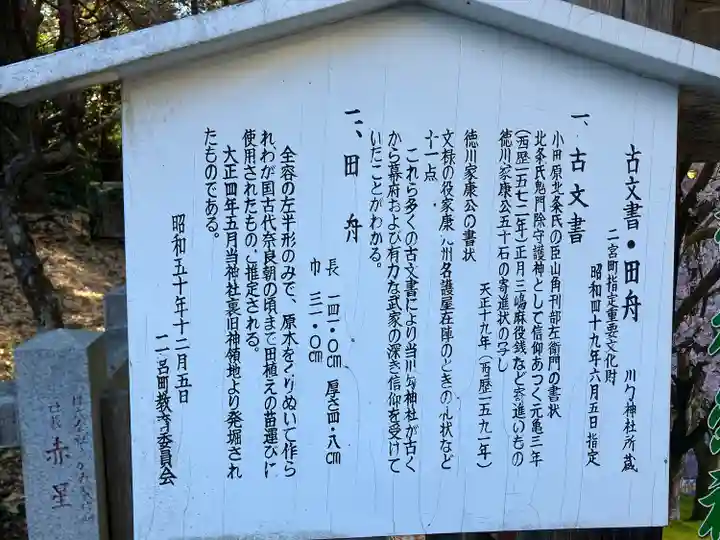 古文書・田舟
川勾神社所蔵
二宮町指定重要文化財
昭和四十九年六月五日指定
一、古文書
小田原北条氏の臣山角刑部左衛門の書状
北条氏鬼門除守護神として信仰あつく元亀三年
(西歴一五七二年)正月三嶋麻役銭など寄進いもの
徳川家康公五十石の寄進状の写し
天正十九年(西歴一五九一年)
徳川家康公の書状
文禄の役家康九州名護屋在陣のときの礼状など
十一点
これら多くの古文書により当川勾神社が古く
から幕府および有力な武家の深き信仰を受けて
いたことがわかる。
二、田舟
長 一四一・〇cm 厚さ四・八cm
巾 三一・〇cm
全容の左半形のみで、原木をくりぬいて作ら
れわが国古代奈良朝の頃まで田植えの苗運びに
使用されたものと推定される。
大正四年五月当神社裏旧神領地より発掘され
たものである。
昭和五十年十二月五日
二宮町教育委員会
赤星